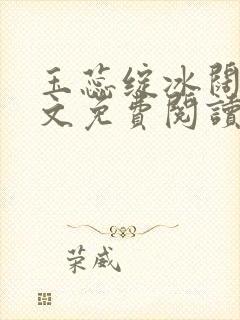 玉蕊绽冰闊
文免費閱讀
荣威